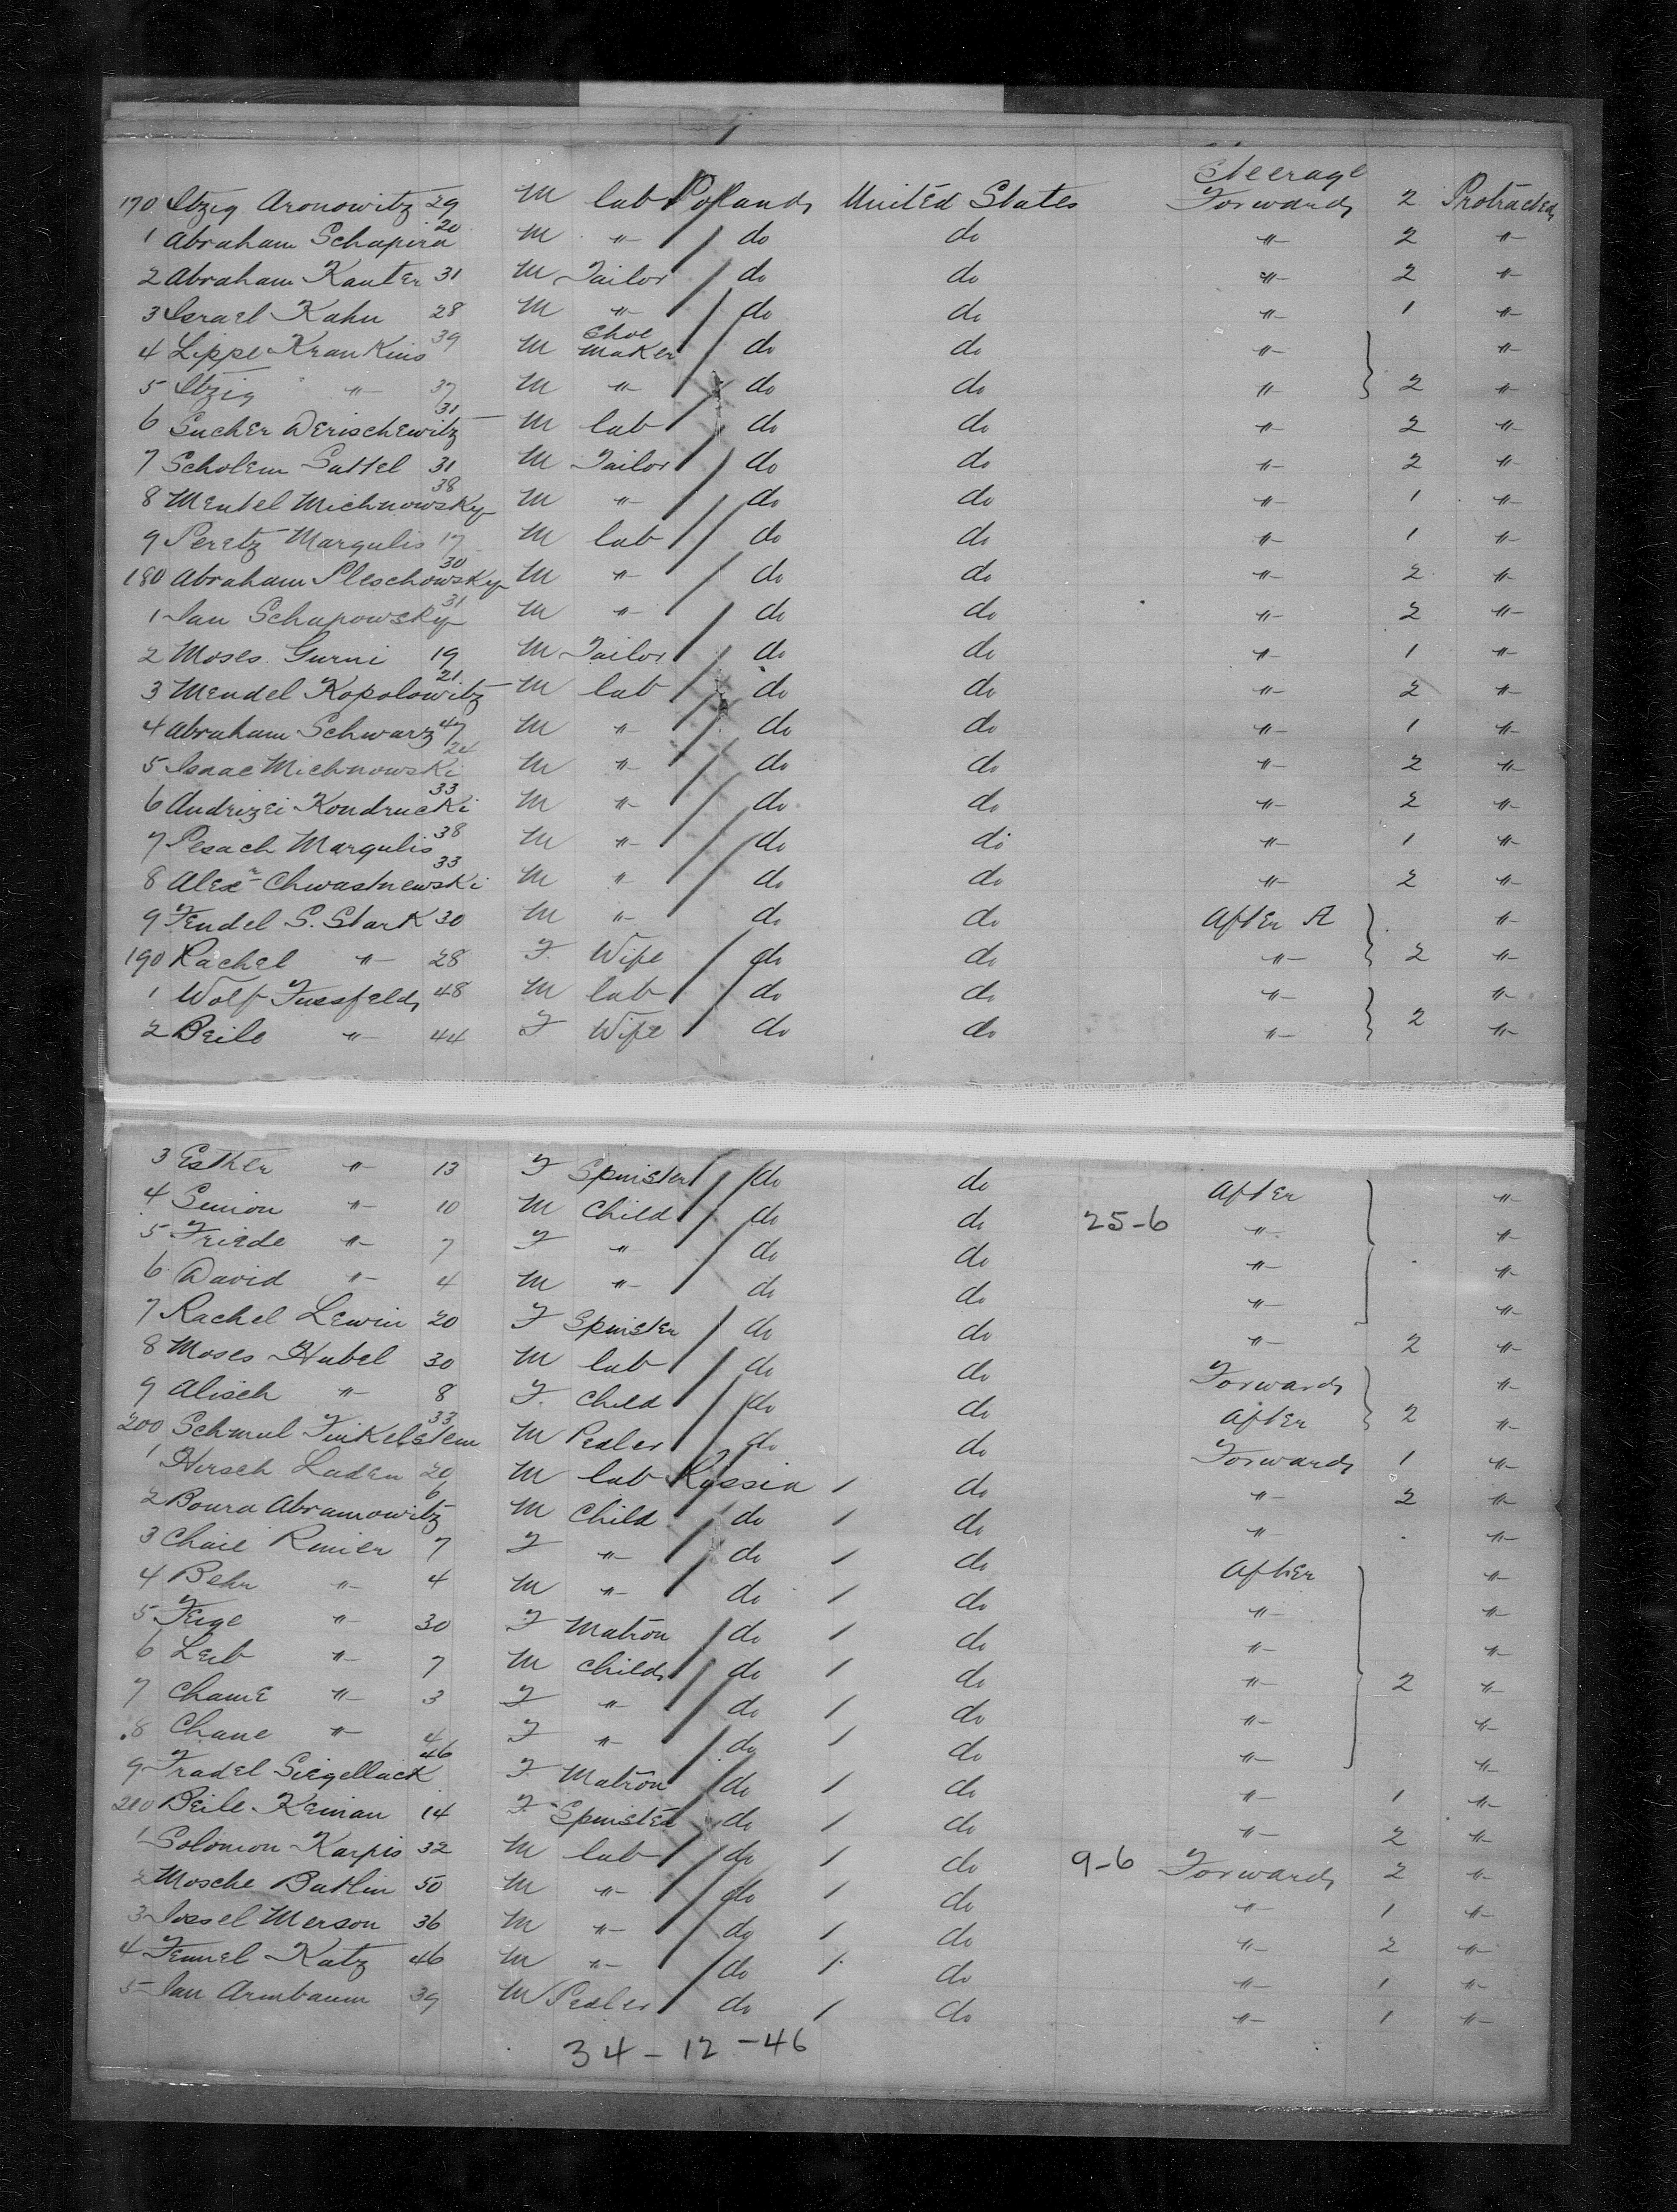 Steerage
170 Itzig Aronowitz 29 M lab Poland United States Forward 2 Protracted
1 Abraham Schapira 20 M " do do " 2 "
2 Abraham Kanter 31 M Tailor do do " 2 "
3 Israel Kahn 28 M " do do " 1 "
4 Lippe Krankins 39 M Shoe Maker do do " "
5 Itzig " 37 M " do do " 2 "
6 Sucher Derischewitz 31 M lab do do " 2 "
7 Scholem Sattel 31 M Tailor do do " 2 "
8 Mentel Michnowsky 38 M " do do " 1 "
9 Peretz Margulis 17 M lab do do " 1 "
180 Abraham Pleschowsky 30 M " do do " 2 "
1 Jan Schapowsky 31 M " do do " 2 "
2 Moses Gurni 19 M Tailor do do " 1 "
3 Mendel Kopolowitz 21 M lab do do " 2 "
4 Abraham Schwarz 47 M " do do " 1 "
5 Isaac Michnowski 24 M " do do " 2 "
6 Andrizei Kondrucki 33 M " do do " 2 "
7 Pesach Margulis 38 M " do do " 1 "
8 Alexr Chwastnewski 33 M " do do " 2 "
9 Fendel S. Stark 30 M " do do After St "
190 Rachel " 28 F. Wife do do " 2 "
1 Wolf Fussfeld 48 M lab do do " "
2 Beile " 44 F Wife do do " 2 "
3 Esther " 13 F Spinster do do After "
4 Simon " 10 M Child do do 25-6 " "
5 Friede " 7 F " do do " "
6 David " 4 M " do do " "
7 Rachel Lewin 20 F Spinster do do " 2 "
8 Moses Hubel 30 M lab do do Forward "
9 Alisch " 8 F. Child do do After 2 "
200 Schmul Finkelstein 33 M Pedler do do Forward 1 "
1 Hersch Luden 20 M lab Russia 1 do " 2 "
2 Boura Abramowitz 6 M Child do 1 do " "
3 Chaie Rinier 7 F " do 1 do After "
4 Behr " 4 M " do 1 do " "
5 Feige " 30 F Matron do 1 do " "
6 Leib " 7 M Child do 1 do " 2 "
7 Chame " 3 F " do 1 do " "
8 Chane " 4 F " do 1 do " "
9 Fradel Siegellack 46 F. Matron do 1 do " 1 "
210 Beile Keinan 14 F. Spinster do 1 do " 2 "
1 Solomon Karpis 32 M lab do 1 do 9-6 Forward 2 "
2 Mosche Butlin 50 M " do 1 do " 1 "
3 Jossel Merson 36 M " do 1 do " 2 "
4 Feunel Katz 46 M " do 1 do " 1 "
5 Jan Armbaum 39 M Pedler do 1 do " 1 "
34-12-46